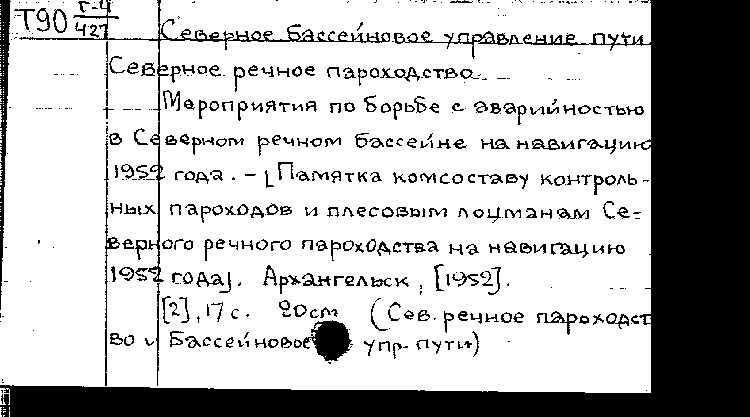 Т90 Г-4
427
Северное бассейновое управление пути
Северное речное пароходство
Мероприятия по борьбе с аварийностью
в Северном речном бассейне на навигацию
1952 года. - [Памятка комсоставу контроль-
ных пароходов и плесовым лоцманам Се-
верного речного пароходства на навигацию
1952 года]. Архангельск, [1952].
[2], 17 с. 20см (Сев. речное пароходст
во и Бассейновое упр. пути)